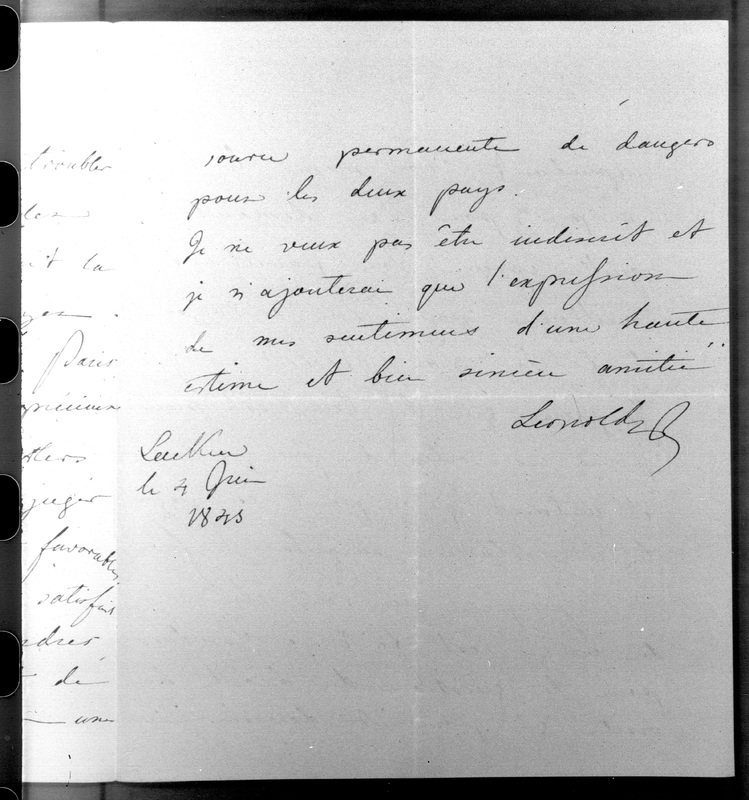 troubler
les
it la
Paris
précieux
juger
favorables
satisfait
de
une
source permanente de dangers
pour les deux pays.
Je ne veux pas être indiscrèt et
je n'ajouterai que l'expression
de mes sentimens d'une haute
estime et bien sincère amitié
Leopold
Laeken
le 4 Juin
1845